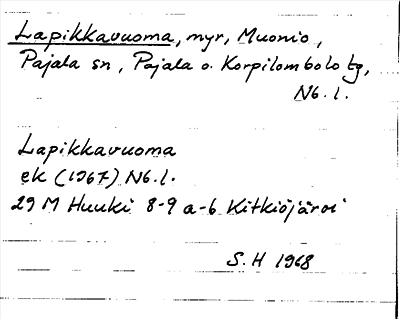 Lapikkavuoma, myr, Muonio,
Pajala sn, Pajala o. Korpilombolo tg,
Nb. l.
Lapikkavuoma
ek (1967) Nb. l.
29 M Huuki 8-9 a-b Kitkiöjärvi
S. H 1968